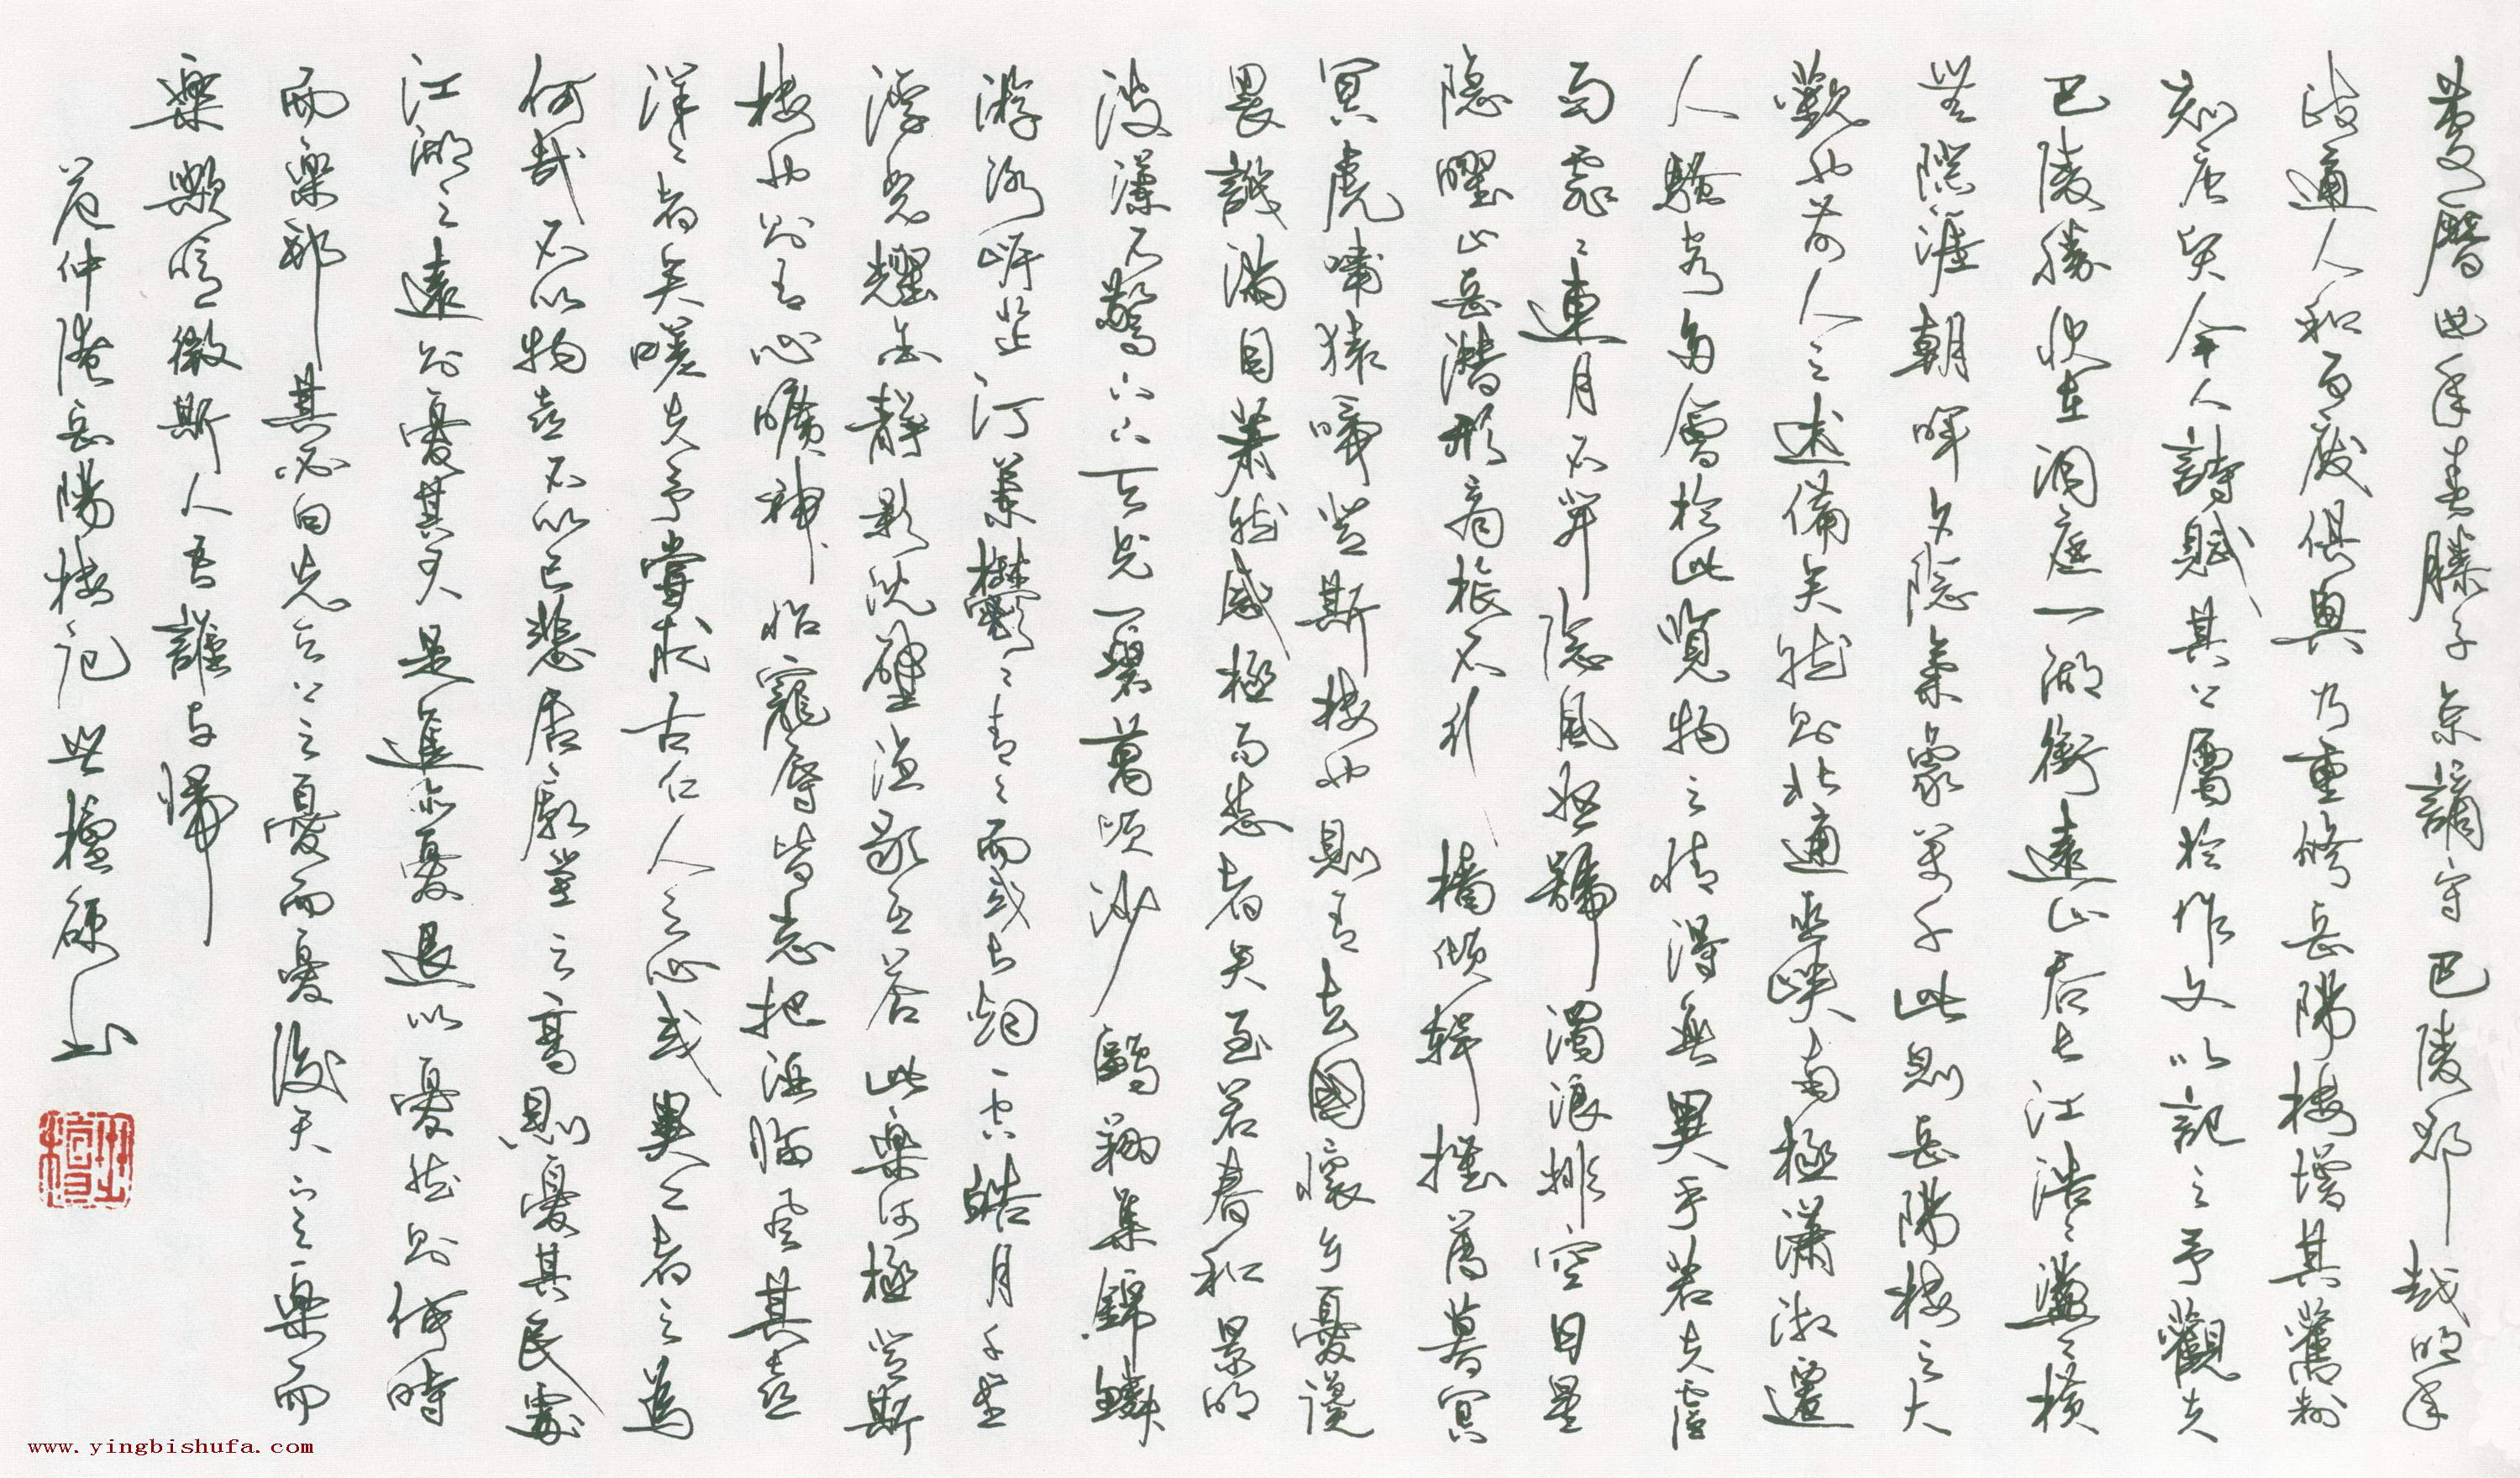 慶曆四年春滕子京謫守巴陵郡越明年
政通人和百廢俱興乃重修岳陽樓增其舊制
刻唐賢今人詩賦其上屬於作文以記之予觀夫
巴陵勝狀在洞庭一湖銜遠山吞長江浩〻蕩〻橫
無際涯朝暉夕陰氣象萬千此則岳陽樓之大
觀也前人之述備矣然則北通巫峽南極瀟湘遷
人騷客多會於此覽物之情得無異乎若夫霪
雨霏〻連月不開陰風怒號濁浪排空日星
隱曜山岳潛形商旅不行檣傾楫摧薄暮冥
冥虎嘯猿啼登斯樓也則有去國懷鄉憂讒
畏譏滿目蕭然感極而悲者矣至若春和景明
波瀾不驚上下天光一碧萬頃沙鷗翔集錦鱗
游泳岸芷汀蘭鬱〻青〻而或長煙一空皓月千里
浮光耀金靜影沉璧漁歌互答此樂何極登斯
樓也則有心曠神怡寵辱皆忘把酒臨風其喜
洋〻者矣嗟夫予嘗求古仁人之心或異二者之為
何哉不以物喜不以己悲居廟堂之高則憂其民處
江湖之遠則憂其君是進亦憂退亦憂然則何時
而樂耶其必曰先天下之憂而憂後天下之樂而
樂歟噫微斯人吾誰与歸
范仲淹岳陽樓記 世檀硬書
世檀
www.yingbishufa.com